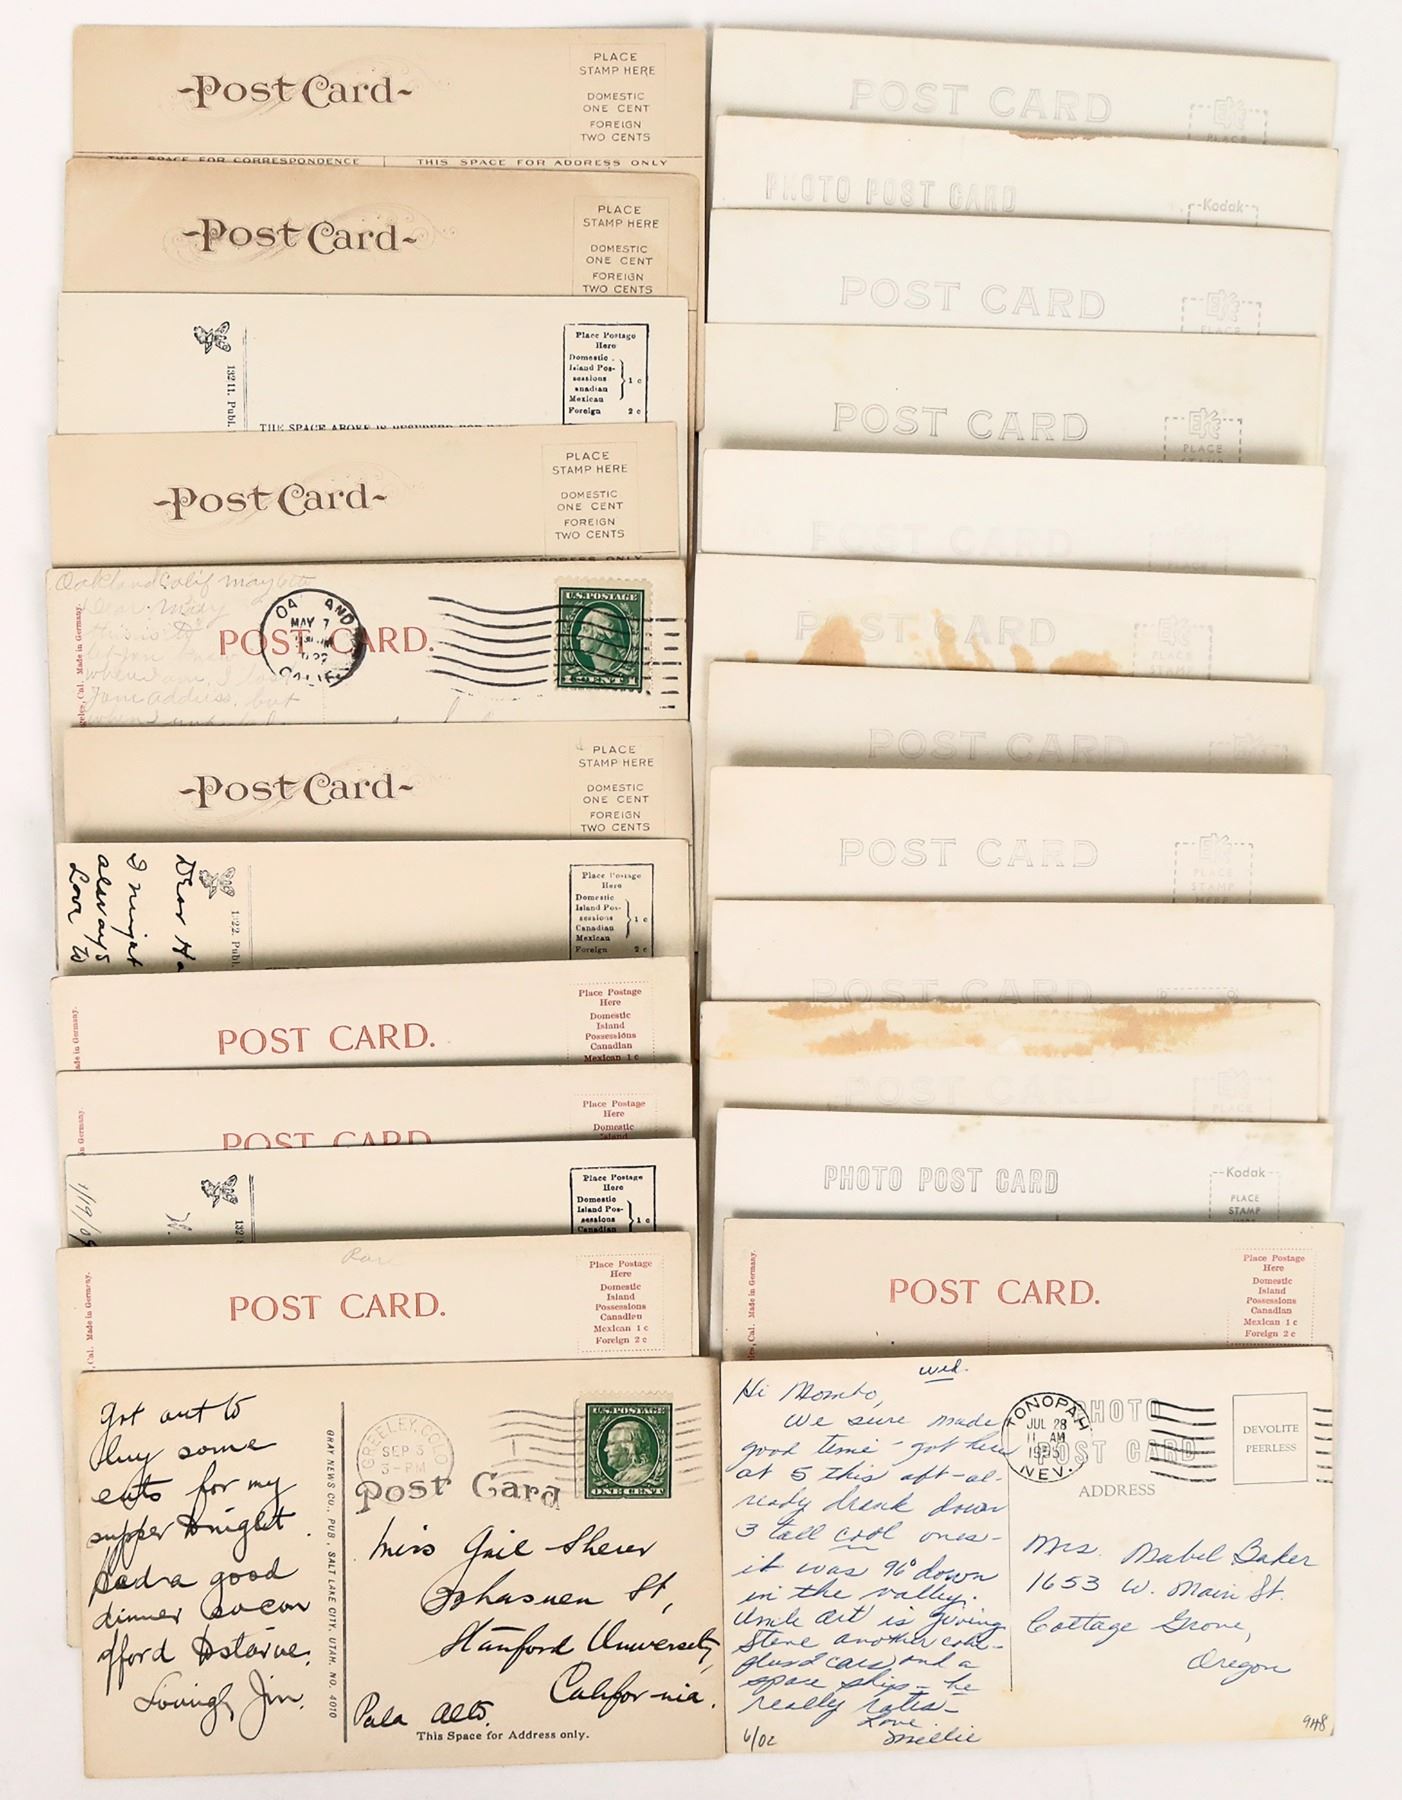 Post Card
PLACE
STAMP HERE
DOMESTIC
ONE CENT
FOREIGN
TWO CENTS
THIS SPACE FOR CORRESPONDENCE
THIS SPACE FOR ADDRESS ONLY
Post Card
PLACE
STAMP HERE
DOMESTIC
ONE CENT
FOREIGN
TWO CENTS
13211. Publ.
Place Postage
Here
Domestic
Island Pos-
sessions
anadian
Mexican
Foreign
1 c
2 c
THE SPACE ABOVE IS RESERVED FOR
Post Card
PLACE
STAMP HERE
DOMESTIC
ONE CENT
FOREIGN
TWO CENTS
FOR ADDRESS ONLY
Oakland Calif May 6th
Dear May
this is to
let you know
address, but
Cal. Made in Germany.
POST CARD.
OA AND
MAY 7
CALIF
U.S. POSTAGE
1 CENT 1
Post Card
PLACE
STAMP HERE
DOMESTIC
ONE CENT
FOREIGN
TWO CENTS
Dear Ha
I might
always
Love to
Publ.
Place Postage
Here
Domestic
Island Pos-
sessions
Canadian
Mexican
Foreign
1 c
2 c
ade in Germany.
POST CARD.
Place Postage
Here
Domestic
Island
Possessions
Canadian
Mexican 1 c
n Germany.
POST CARD
Place Postage
Here
Domestic
Island
1/19/09
132
Place Postage
Here
Domestic
Island Pos-
sessions
Canadian
1 c
Cal. Made in Germany.
POST CARD.
Place Postage
Here
Domestic
Island
Possessions
Canadien
Mexican 1 c
Foreign 2 c
Got out to
buy some
eats for my
supper tonight.
Had a good
dinner so can
afford to starve.
Lovingly Jim.
GRAY NEWS CO., PUB, SALT LAKE CITY, UTAH. NO. 4010
GREELEY, COLO
SEP 3
3-PM
Post Card
U.S. POSTAGE
ONE CENT
Miss Gail Sherer
St,
Stanford University,
California.
Palo Alto.
This Space for Address only.
POST CARD
EKC
PLACE
PHOTO POST CARD
Kodak
POST CARD
EKC
PLACE
POST CARD
EKC
PLACE
STAMP
POST CARD
POST CARD
EKC
PLACE
STAMP
POST CARD
EKC
POST CARD
EKC
PLACE
STAMP
HERE
POST CARD
POST CARD
EKC
PLACE
PHOTO POST CARD
Kodak
PLACE
STAMP
HERE
eles, Cal. Made in Germany.
POST CARD.
Place Postage
Here
Domestic
Island
Possessions
Canadian
Mexican 1 c
Foreign 2 c
Wed.
Hi Mombo,
We sure made
good time - got here
at 5 this aft - al-
ready drank down
3 tall cool ones -
it was 96° down
in the valley.
Uncle Art is giving
Steve another
cars and a
space ship - he
really rates -
Love
Millie
6/02
TONOPAH
JUL 28
11 AM
1955
NEV.
PHOTO
POST CARD
ADDRESS
DEVOLITE
PEERLESS
Mrs. Mabel Baker
1653 W. Main St.
Cottage Grove,
Oregon
948